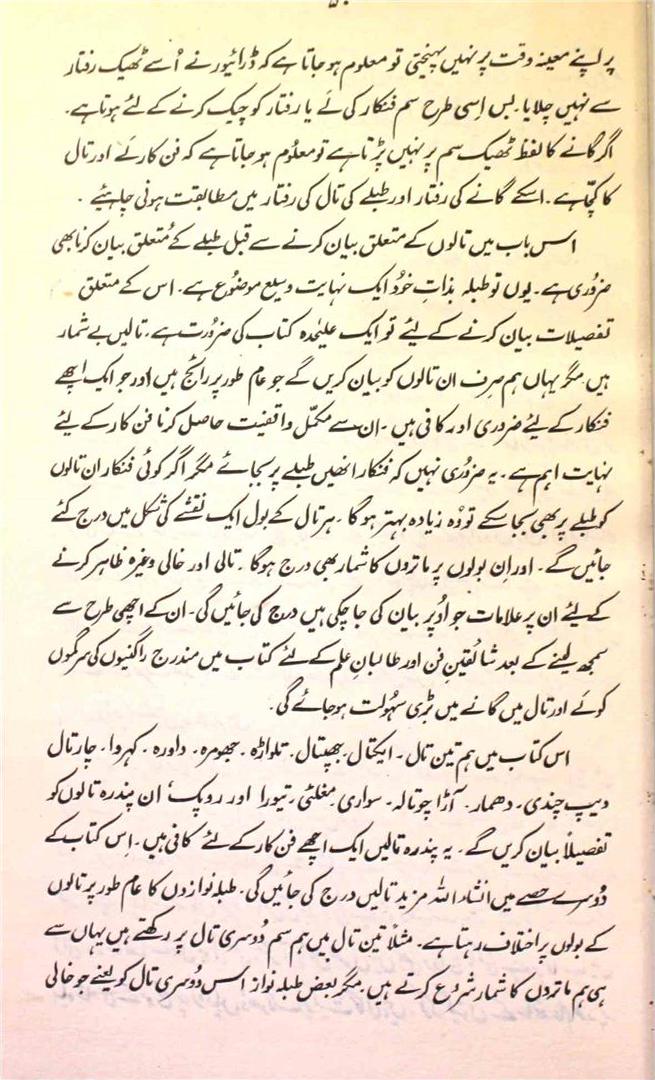 ۵۰
پر اپنے معینہ وقت پر نہیں پہنچتی تو معلوم ہو جاتا ہے کہ ڈرائیور نے اُسے ٹھیک رفتار
سے نہیں چلایا۔ بس اِسی طرح سم فنکار کی لَے یا رفتار کو چیک کرنے کے لئے ہوتا ہے۔
اگر گانے کا لفظ ٹھیک سم پر نہیں پڑتا ہے تو معلوُم ہو جاتا ہے کہ فن کار لَے اور تال
کا کچّا ہے۔ اسکے گانے کی رفتار اور طبلے کی تال کی رفتار میں مطابقت ہونی چاہئیے۔
اس باب میں تالوں کے متعلق بیان کرنے سے قبل طبلے کے مُتعلق بیان کرنا بھی
ضروُری ہے۔ یوں تو طبلہ بذاتِ خوُد ایک نہایت وسیع موضوُع ہے۔ اس کے متعلق
تفصیلات بیان کرنے کے لیئے تو ایک علیٰحدہ کتاب کی ضروُرت ہے۔ تالیں بے شمار
ہیں مگر یہاں ہم صرِف ان تالوں کو بیان کریں گے جو عام طور پر رائج ہیں اور جو ایک اچھے
فنکار کے لیئے ضروری اور کافی ہیں۔ ان سے مکمّل واقفیت حاصل کرنا فن کار کے لیئے
نہایت اہم ہے۔ یہ ضروُری نہیں کہ فنکار انھیں طبلے پر بجائے مگر اگر کوئی فنکار ان تالوں
کو طبلے پر بھی بجا سکے تو وُہ زیادہ بہتر ہو گا۔ ہر تال کے بول ایک نقشے کی شکل میں درج کئے
جائیں گے۔ اور اِن بولوں پر ماتروں کا شمار بھی درج ہوگا۔ تالی اور خالی وغیرہ ظاہر کرنے
کے لیئے ان پر علامات جو اُوپر بیان کی جا چکی ہیں درج کی جائیں گی۔ ان کے اچھی طرح سے
سمجھ لینے کے بعد شائقینِ فن اور طالبانِ علم کے لئے کتاب میں مندرج راگنیوں کی سرگموں
کو لَے اور تال میں گانے میں بڑی سہُولت ہو جائے گی۔
اس کتاب میں ہم تین تال۔ ایکتال۔ جھپتال۔ تلواڑہ۔ جھومرہ۔ دادرہ۔ کہروا۔ چار تال
دیپ چندی۔ دھمار۔ آڑا چوتالہ۔ سواری۔ مغلئی۔ تیورا اور روپک، ان پندرہ تالوں کو
تفصیلاً بیان کریں گے۔ یہ پندرہ تالیں ایک اچھے فن کار کے لئے کافی ہیں۔ اِس کتاب کے
دُوسرے حصے میں انشاء اللہ مزید تالیں درج کی جائیں گی۔ طبلہ نوازوں کا عام طور پر تالوں
کے بولوں پر اختلاف رہتا ہے۔ مثلاً تین تال میں ہم سم دُوسری تال پر رکھتے ہیں یہاں سے
ہی ہم ماتروں کا شمار شروُع کرتے ہیں۔ مگر بعض طبلہ نواز اس دُوسری تال کو یعنے جو خالی